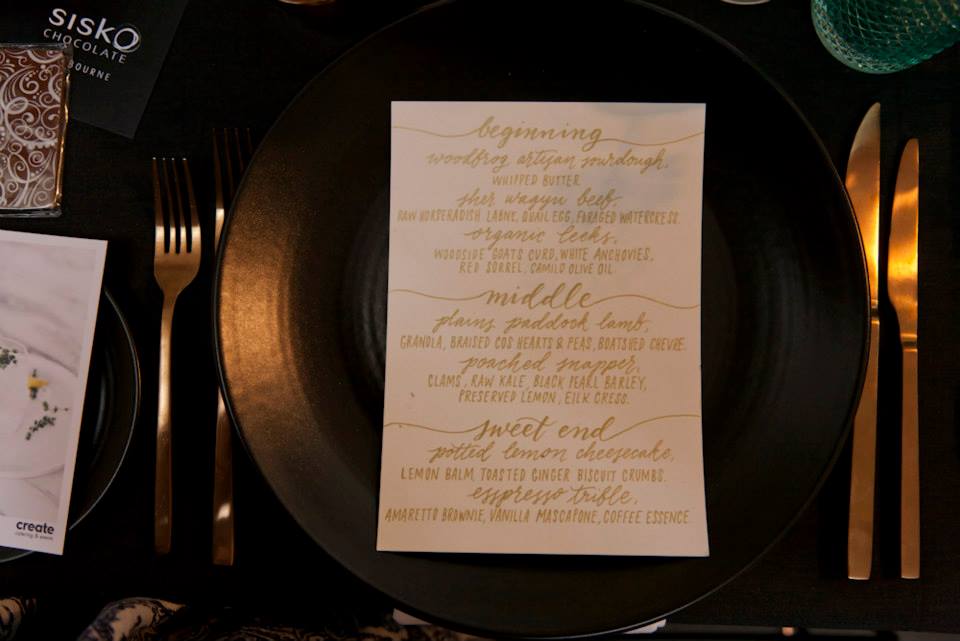 SISKO
CHOCOLATE
BOURNE
beginning
woodfrog artisan sourdough,
WHIPPED BUTTER
sher wagyu beef,
RAW HORSERADISH LABNE, QUAIL EGG, FORAGED WATERCRESS.
organic leeks,
WOODSIDE GOATS CURD, WHITE ANCHOVIES,
RED SORREL, CAMILO OLIVE OIL
middle
plains paddock lamb,
GRANOLA, BRAISED COS HEARTS & PEAS, BOATSHED CHEVRE.
poached snapper,
CLAMS, RAW KALE, BLACK PEARL BARLEY,
PRESERVED LEMON, EILK CRESS.
sweet end
potted lemon cheesecake,
LEMON BALM, TOASTED GINGER BISCUIT CRUMBS.
espresso trifle,
AMARETTO BROWNIE, VANILLA MASCAPONE, COFFEE ESSENCE.
create
catering & events